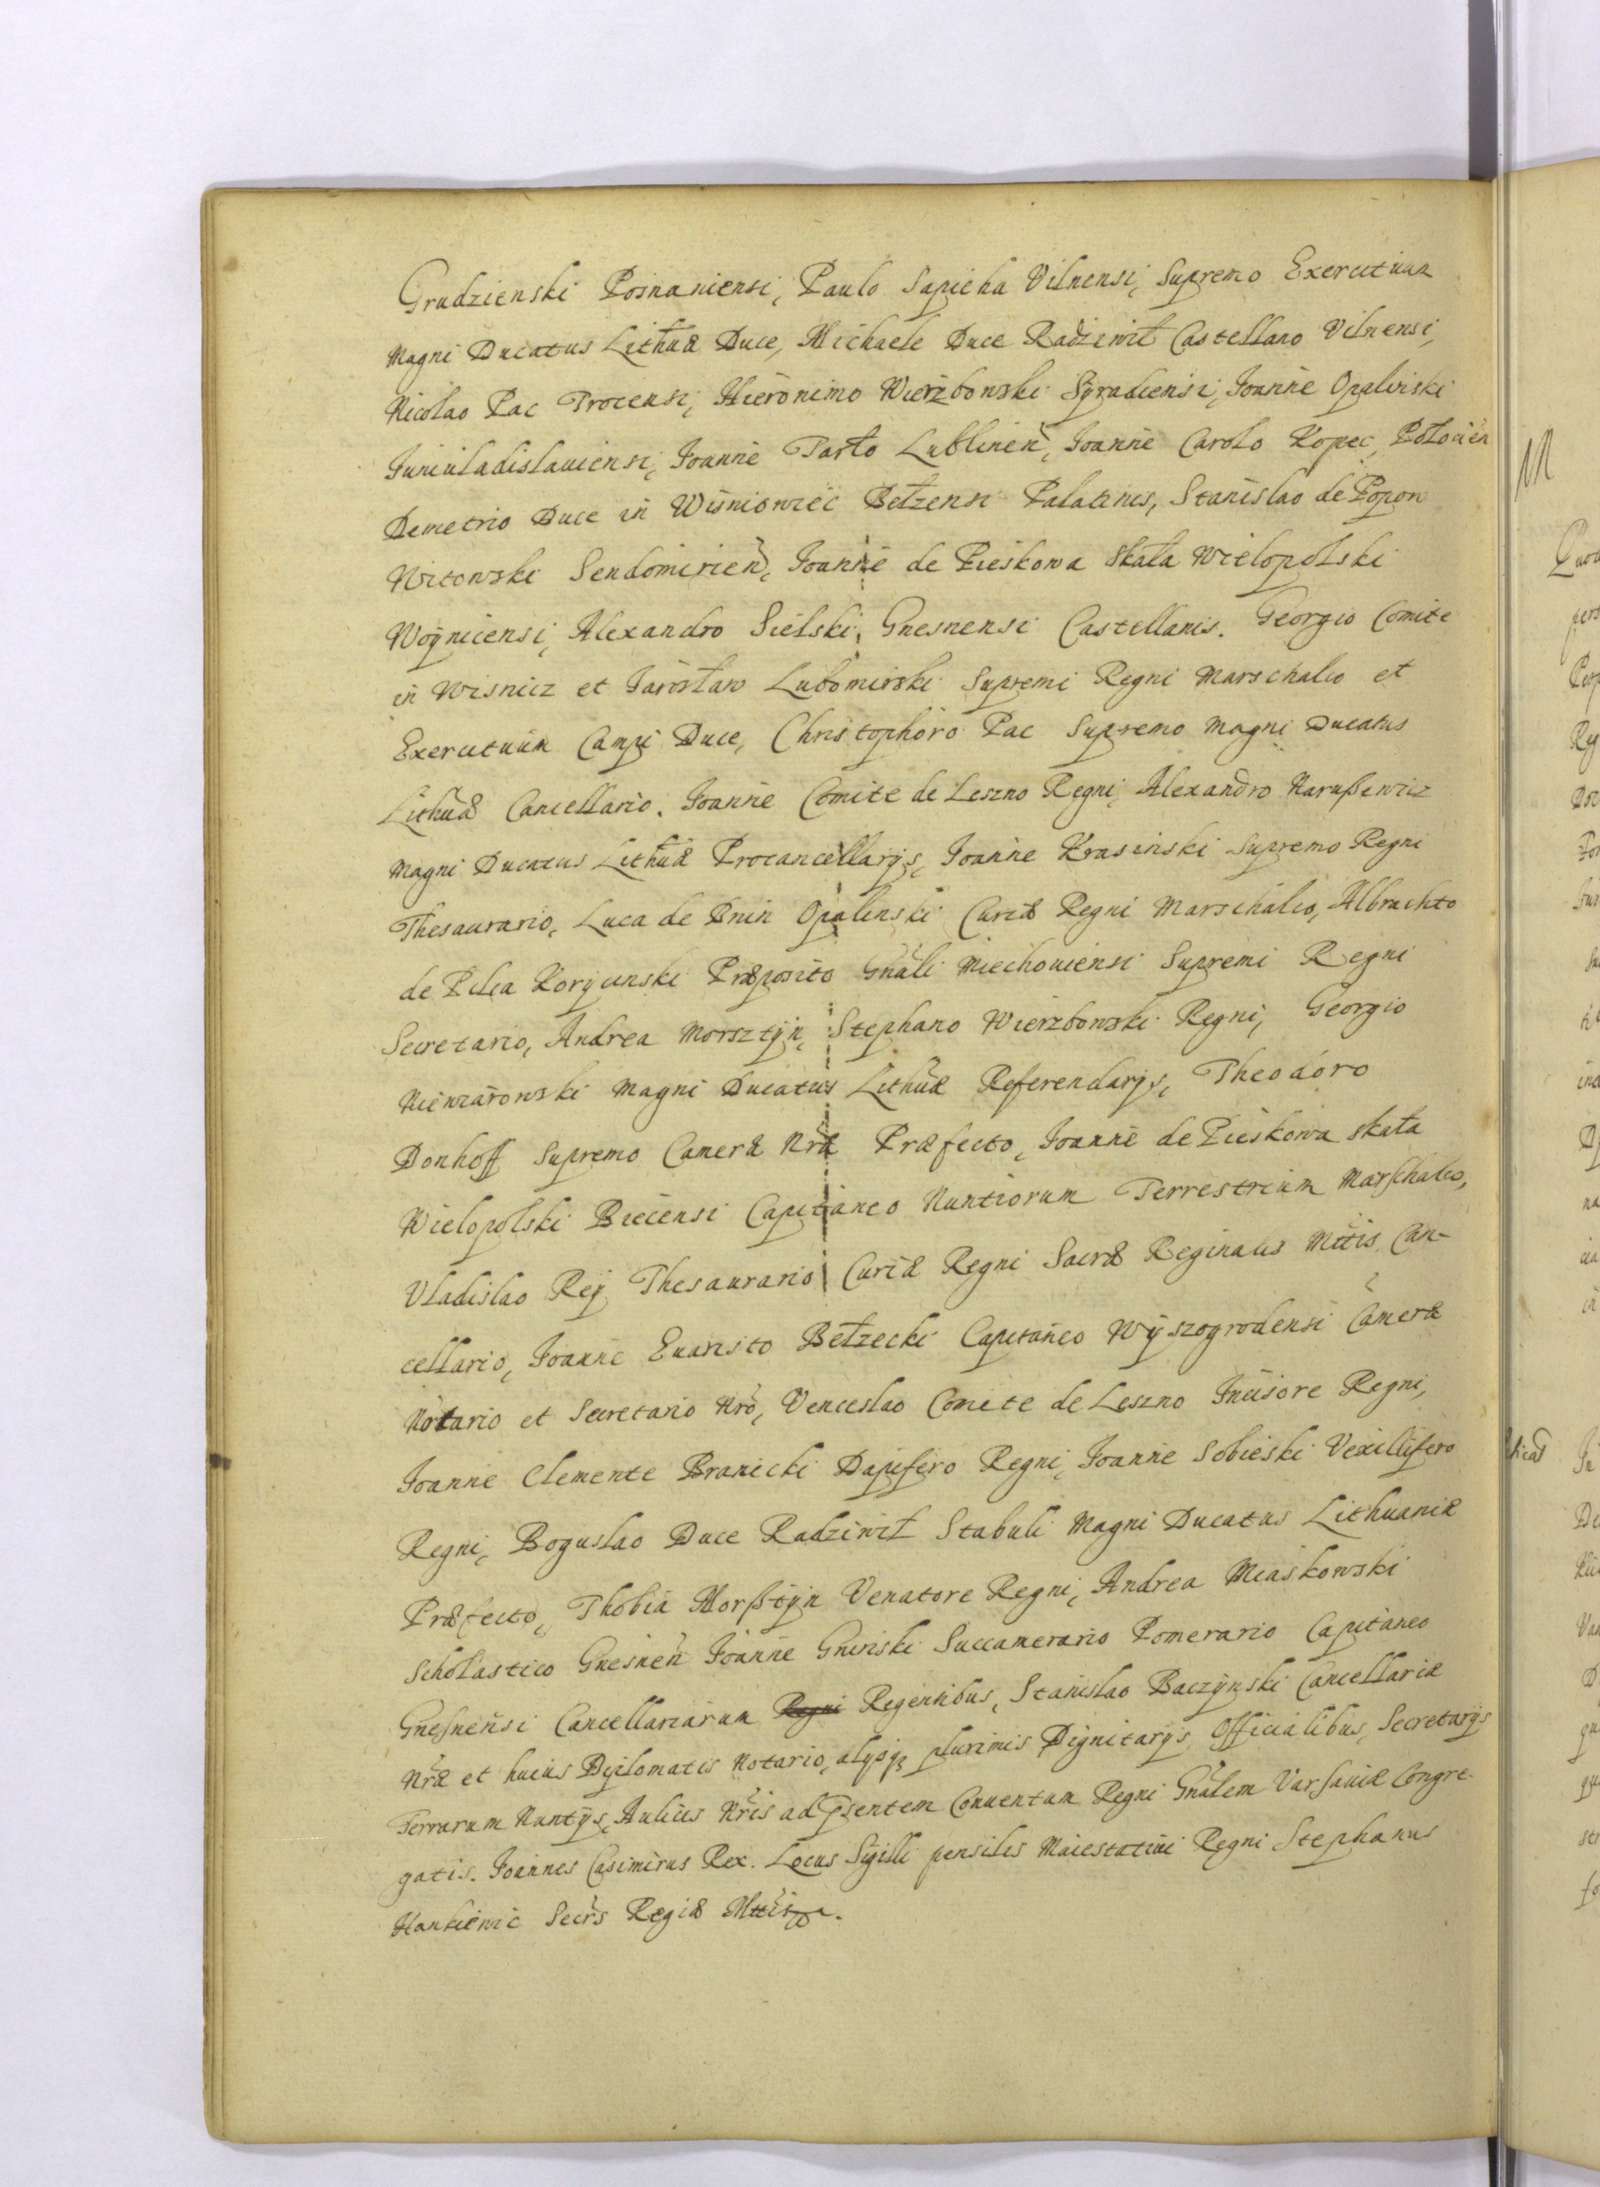 Grudzienski Posnaniensi, Paulo Sapieha Vilnensi, Supremo Exercituum
Magni Ducatus Lithuæ Duce, Michaele Duce Radziwił Castellano Vilnensi,
Nicolao Pac Trocensi, Hieronimo Wierzbowski Syradiensi, Joanne Opalinski
Juniuladislauiensi, Joanne Tarło Lublinen, Joanne Carolo Kopec, Połocien
Demetrio Duce in Wisniowiec Bełzensi Palatinis, Stanislao de Popow
Witowski Sendomirien, Joanne de Pieskowa Skała Wielopolski
Woynicensi, Alexandro Sielski, Gnesnensi Castellanis. Georgio Comite
in Wisnicz et Jarosław Lubomirski Supremi Regni Marschalco et
Exercituum Campi Duce, Christophoro Pac Supremo Magni Ducatus
Lithuæ Cancellario. Joanne Comite de Leszno Regni, Alexandro Narußewicz
Magni Ducatus Lithuæ Procancellarys, Joanne Krasinski Supremo Regni
Thesaurario, Luca de Bnin Opalinski Curiæ Regni Marschalco, Albrachto
de Pilca Korycinski Præposito Gnali Miechouiensi Supremi Regni
Secretario, Andrea Morsztyn, Stephano Wierzbowski Regni, Georgio
Niewiarowski Magni Ducatus Lithuæ Referendarys, Theodoro
Donhoff Supremo Cameræ Nræ Præfecto, Joanne de Pieskowa skała
Wielopolski Biecensi Capitaneo Nuntiorum Terrestrium Marschalco,
Vladislao Rey Thesaurario Curiæ Regni Sacræ Reginalis Mttis Can-
cellario, Joanne Euaristo Bełzecki Capitaneo Wyszogrodensi Cameræ
Notario et Secretario Nro, Venceslao Comite de Leszno Incisore Regni,
Joanne Clemente Branicki Dapifero Regni, Joanne Sobieski Vexillifero
Regni, Boguslao Duce Radziwił Stabuli Magni Ducatus Lithuaniæ
Præfecto, Thobia Morßtyn Venatore Regni, Andrea Miaskowski
Scholastico Gnesnen Joanne Gninski Succamerario Pomerario Capitaneo
Gnesnensi Cancellariarum Regni Regentibus, Stanislao Baczynski Cancellariæ
Nræ et huius Diplomatis Notario, alysq; plurimis Dignitarys, Officialibus, Secretarys
Terrarum Nuntys, Aulicis Nris ad psentem Conuentum Regni Gnalem Varsauiæ Congre-
gatis. Joannes Casimirus Rex. Locus Sigilli pensilis Maiestatici Regni Stephanus
Hankiewic Secrs Regiæ Mttis.